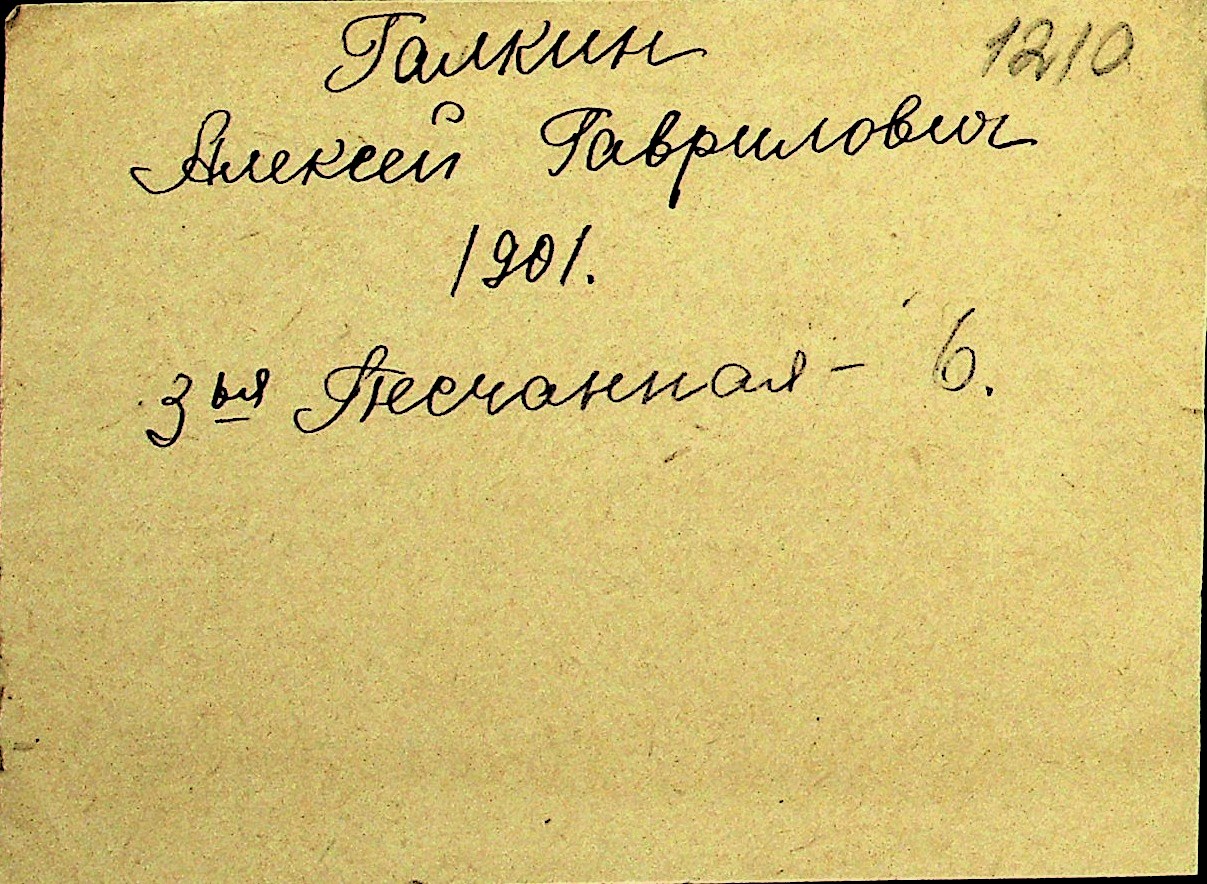 1210
Галкин
Алексей Гаврилович
1901.
3ья Песчанная - 6.